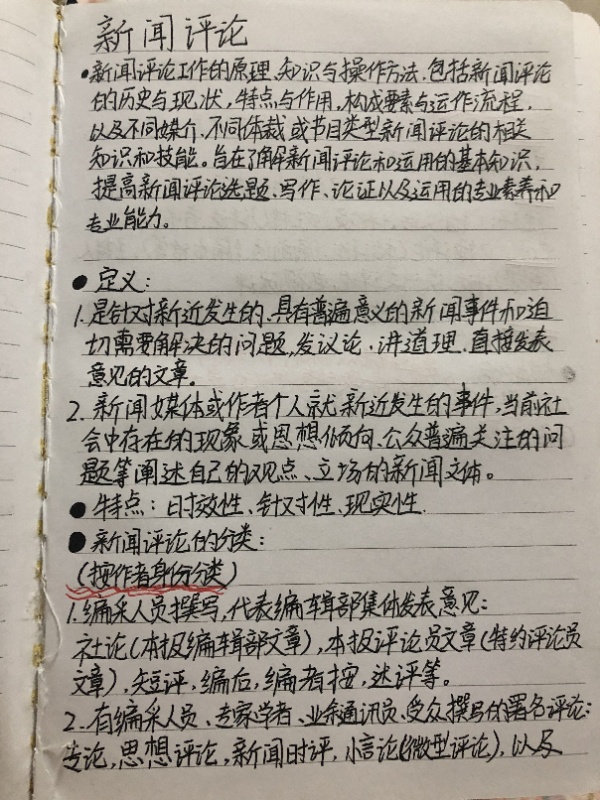 新闻评论
•新闻评论工作的原理、知识与操作方法.包括新闻评论
的历史与现状,特点与作用,构成要素与运作流程,
以及不同媒介、不同体裁或节目类型新闻评论的相关
知识和技能。旨在了解新闻评论和运用的基本知识,
提高新闻评论选题、写作、论证以及运用的专业素养和
专业能力。
●定义:
1.是针对新近发生的、具有普遍意义的新闻事件和迫
切需要解决的问题,发议论、讲道理、直接发表
意见的文章。
2.新闻媒体或作者个人就新近发生的事件,当前社
会中存在的现象或思想倾向、公众普遍关注的问
题等阐述自己的观点、立场的新闻文体。
●特点:时效性、针对性、现实性.
●新闻评论的分类:
(按作者身份分类)
1.编采人员撰写,代表编辑部集体发表意见:
社论(本报编辑部文章),本报评论员文章(特约评论员
文章),短评,编后,编者按,述评等。
2.有编采人员、专家学者、业余通讯员、受众撰写的署名评论:
专论,思想评论,新闻时评,小言论(微型评论),以及